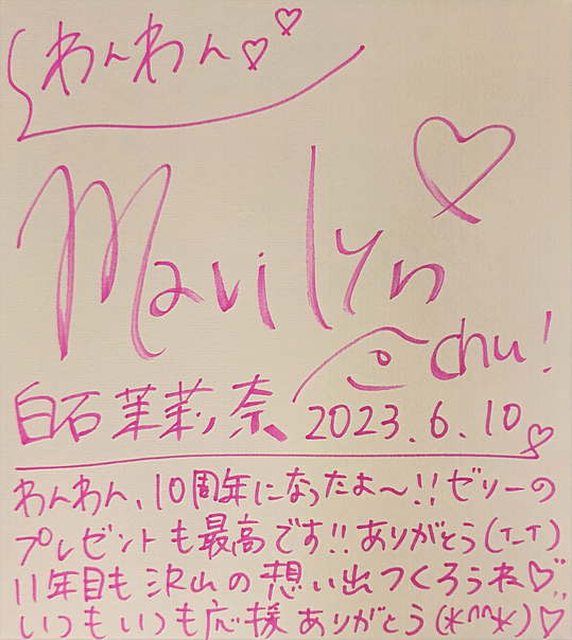 わんわん♡♡
Marilyn♡
chu!
白石茉莉奈 2023.6.10♡
わんわん、10周年になったよ〜!!ゼリーの
プレゼントも最高です!!ありがとう(T_T)
11年目も沢山の想い出つくろうね♡
いつもいつも応援ありがとう(*^^*)♡